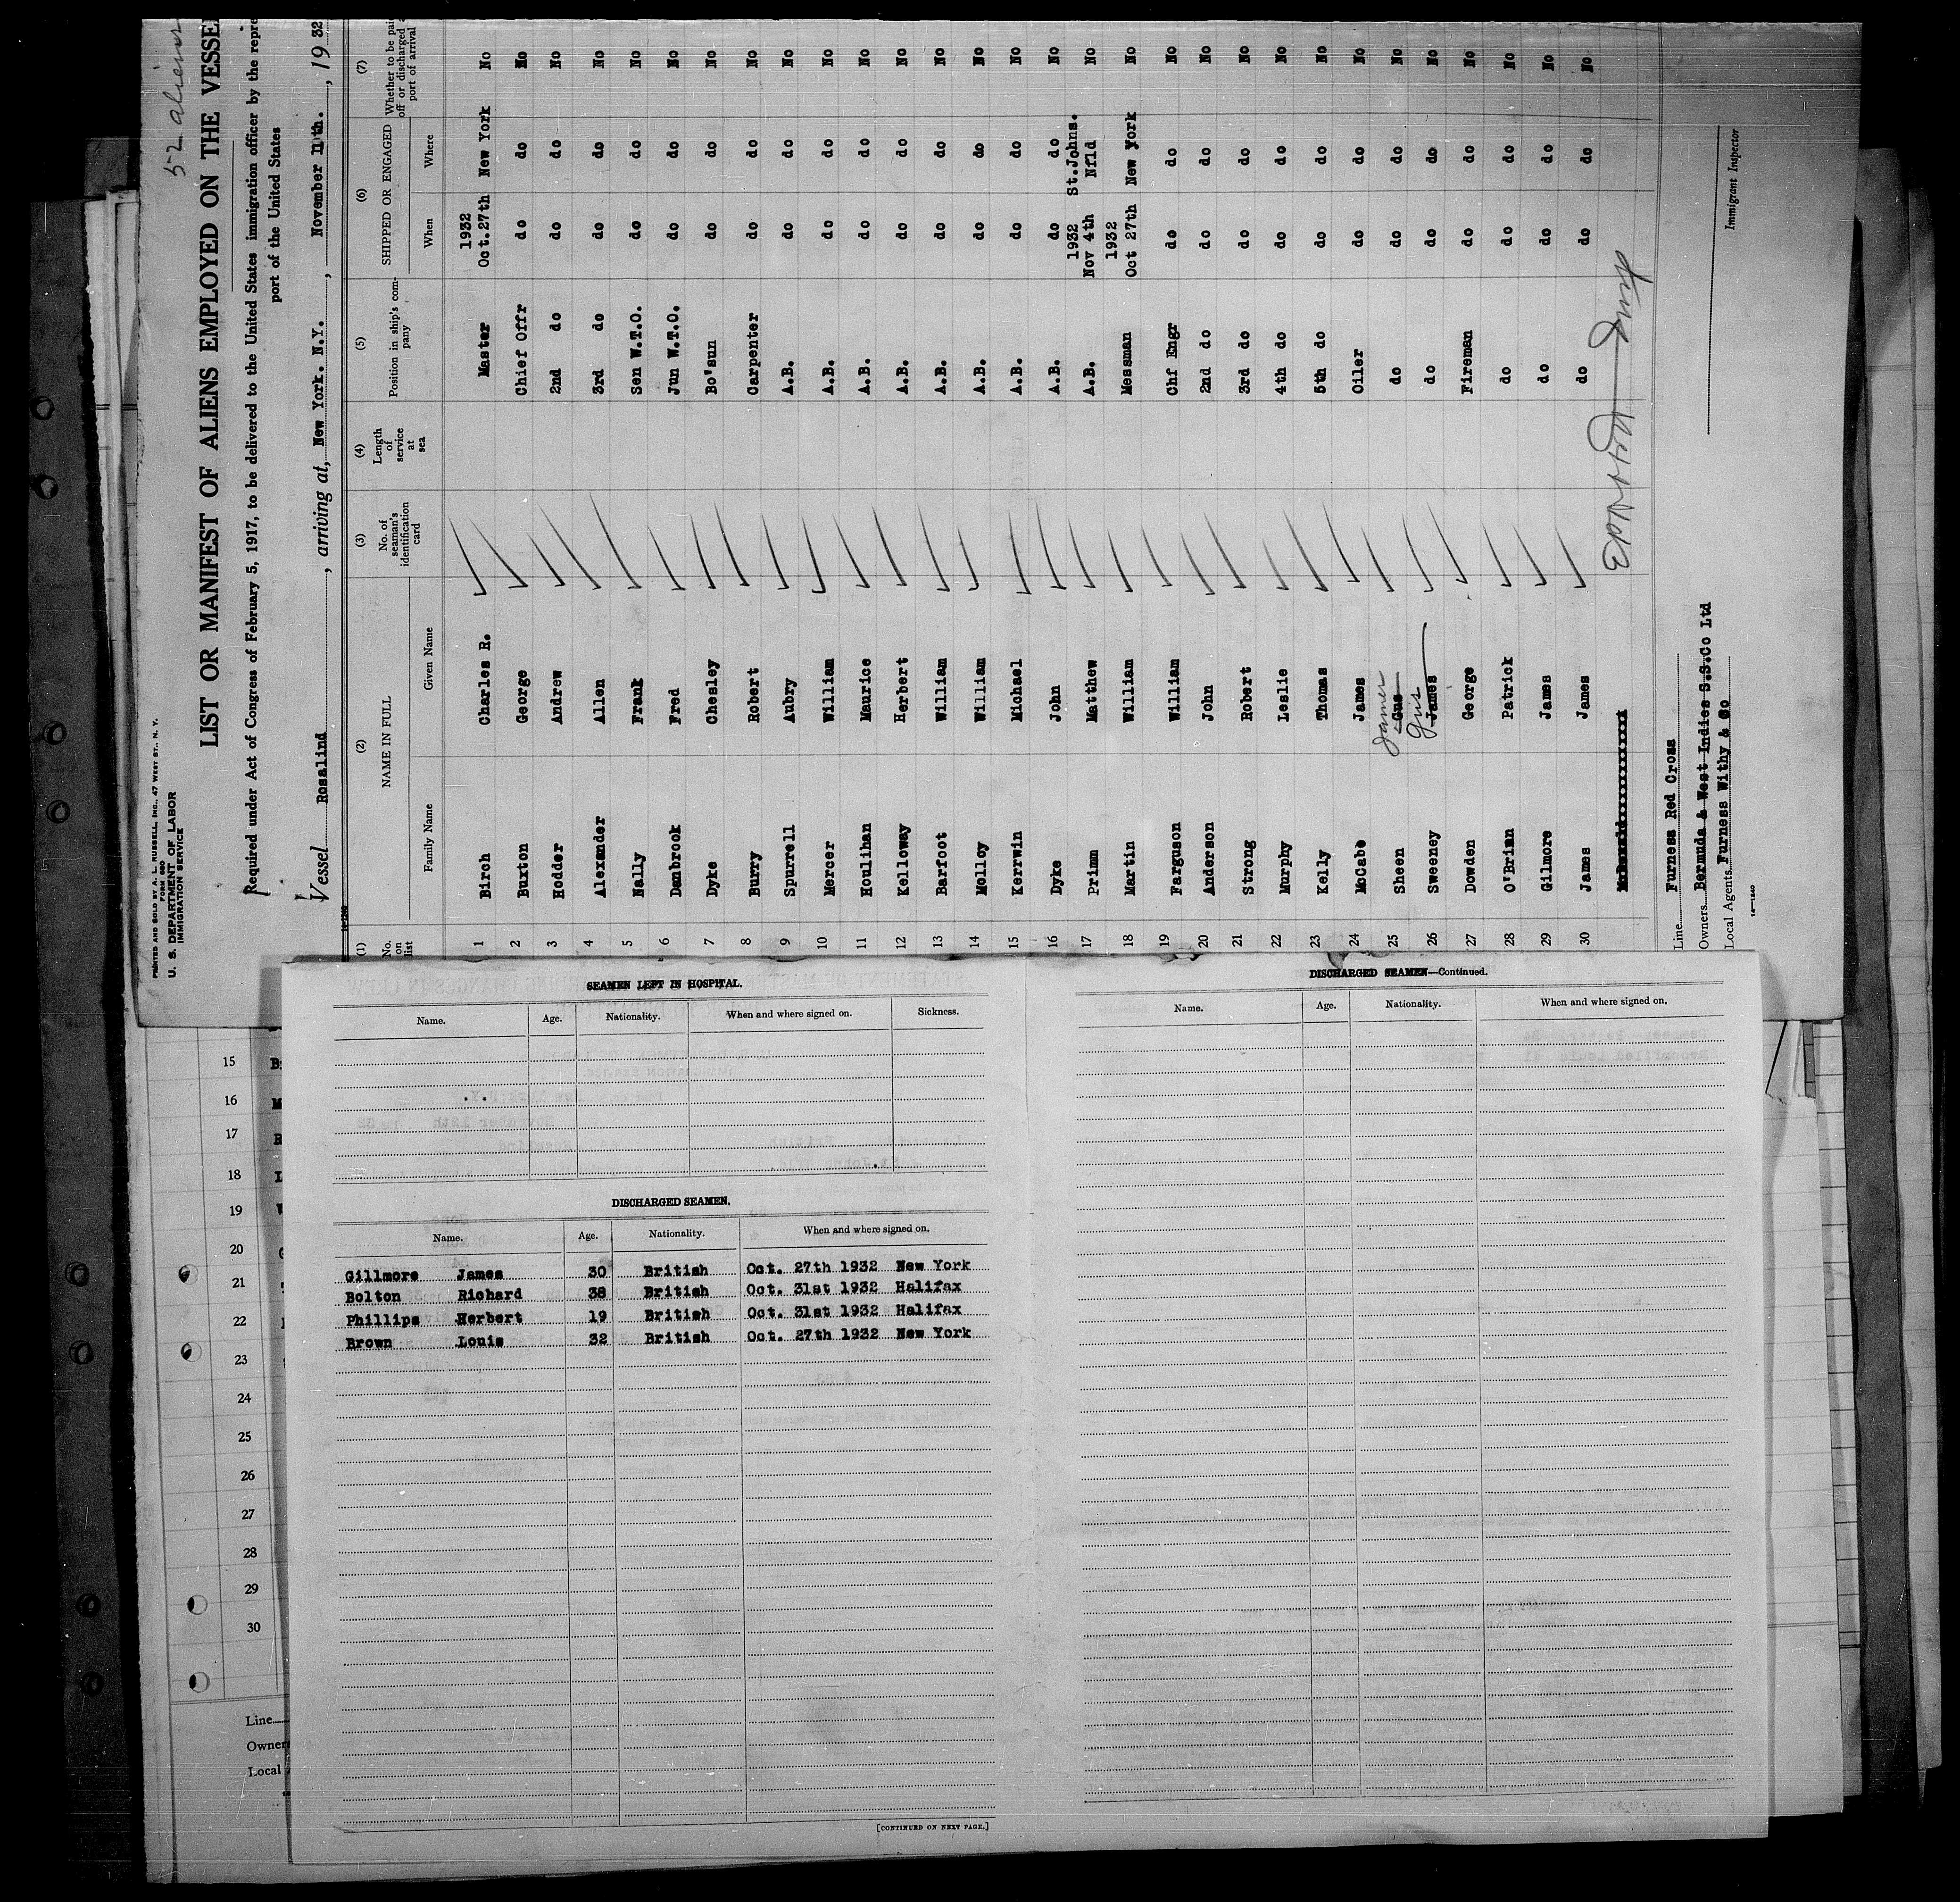 52 aliens
PRINTED AND SOLD BY A. L. RUSSELL, INC., 47 WEST ST., N. Y.
FORM 680
U. S. DEPARTMENT OF LABOR
IMMIGRATION SERVICE
LIST OR MANIFEST OF ALIENS EMPLOYED ON THE VESSE
Required under Act of Congress of February 5, 1917, to be delivered to the United States immigration officer by the repre
port of the United States
Vessel Rosalind, arriving at, New York. N.Y., November 11th., 1932
(1) (2) (3) (4) (5) (6) (7)
No. on list NAME IN FULL No. of seaman's identification card Length of service at sea Position in ship's company SHIPPED OR ENGAGED Whether to be pai off or discharged port of arrival
Family Name Given Name When Where
1 Birch Charles R. Master 1932 Oct.27th New York No
2 Buxton George Chief Offr do do No
3 Hodder Andrew 2nd do do do No
4 Alexander Allen 3rd do do do No
5 Nally Frank Sen W.T.O. do do No
6 Danbrook Fred Jun W.T.O. do do No
7 Dyke Chesley Bo'sun do do No
8 Burry Robert Carpenter do do No
9 Spurrell Aubry A.B. do do No
10 Mercer William A.B. do do No
11 Houlihan Maurice A.B. do do No
12 Kelloway Herbert A.B. do do No
13 Barfoot William A.B. do do No
14 Molloy William A.B. do do No
15 Kerwin Michael A.B. do do No
16 Dyke John A.B. do do No
17 Primm Matthew A.B. 1932 Nov 4th St.Johns. Nfld No
18 Martin William Messman 1932 Oct 27th New York No
19 Farguson William Chf Engr do do No
20 Anderson John 2nd do do do No
21 Strong Robert 3rd do do do No
22 Murphy Leslie 4th do do do No
23 Kelly Thomas 5th do do do No
24 McCabe James Oiler do do No
25 Sheen Gus James do do do No
26 Sweeney James Gus do do do No
27 Dowden George Fireman do do No
28 O'Brian Patrick do do do No
29 Gilmore James do do do No
30 James James do do do No
Line Furness Red Cross
Owners Bermuda & West Indies S.S.Co Ltd
Local Agents Furness Withy & Co
Immigrant Inspector
SEAMEN LEFT IN HOSPITAL.
Name. Age. Nationality. When and where signed on. Sickness.
DISCHARGED SEAMEN.
Name. Age. Nationality. When and where signed on.
Gillmore James 30 British Oct. 27th 1932 New York
Bolton Richard 38 British Oct. 31st 1932 Halifax
Phillips Herbert 19 British Oct. 31st 1932 Halifax
Brown Louis 32 British Oct. 27th 1932 New York
[CONTINUED ON NEXT PAGE.]
DISCHARGED SEAMEN—Continued.
Name. Age. Nationality. When and where signed on.
15
16
17
18
19
20
21
22
23
24
25
26
27
28
29
30
Line
Owner
Local